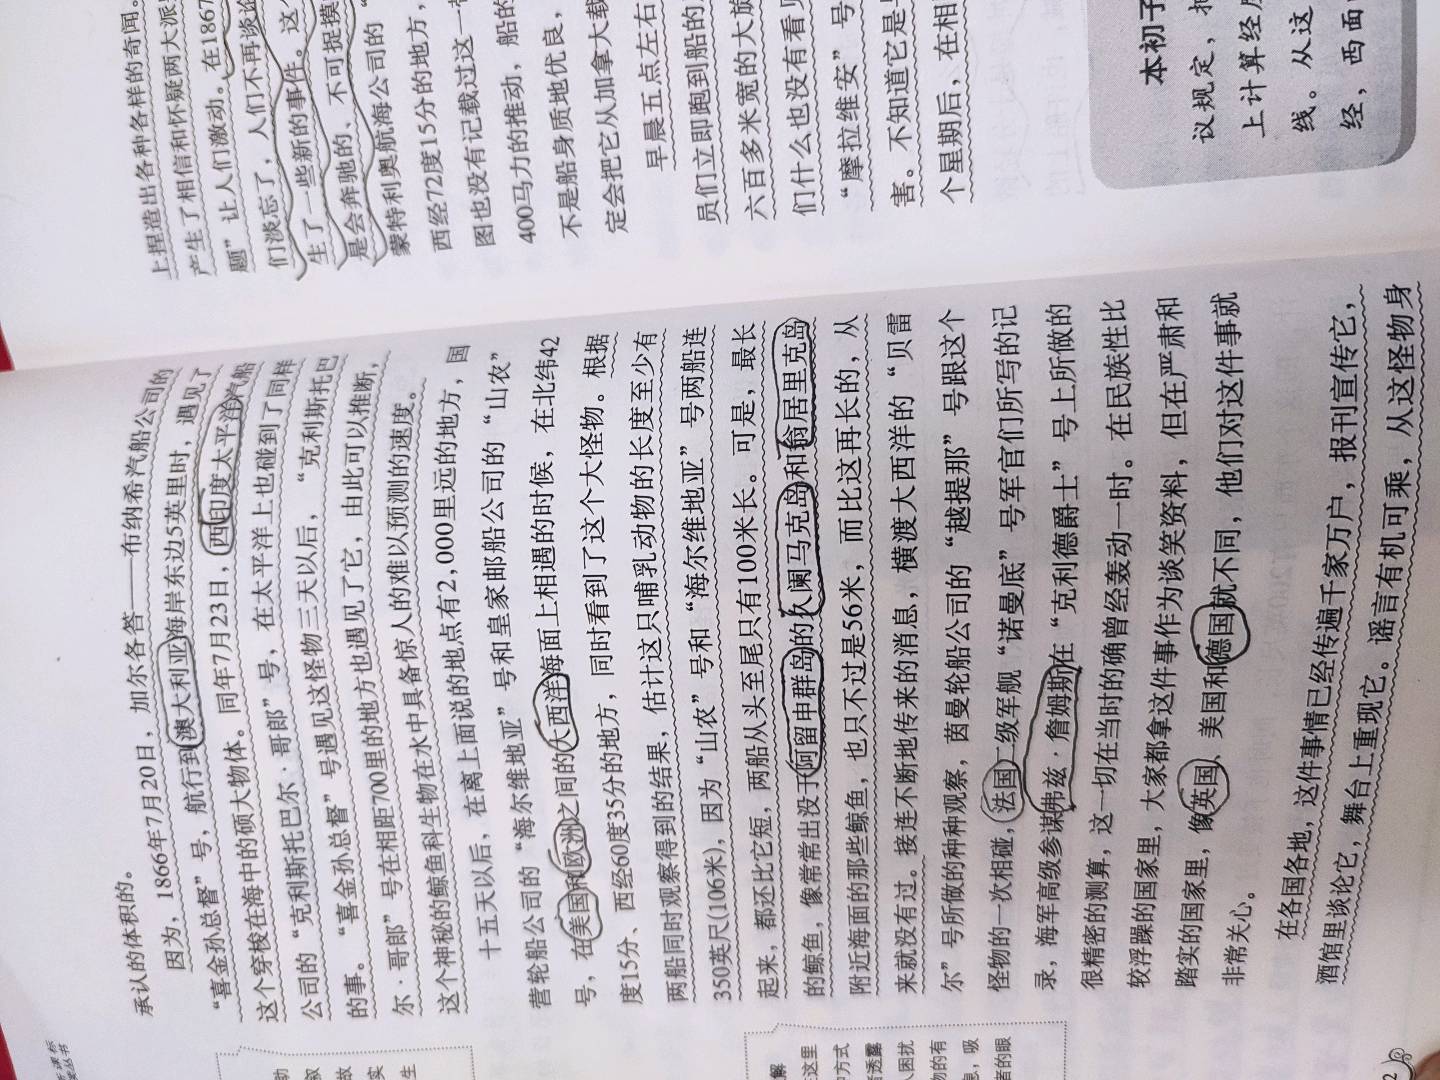 承认的体积的。
因为，1866年7月20日，加尔各答——布纳希汽船公司的
“喜金孙总督”号，航行到澳大利亚海岸东边5英里时，遇见了
这个穿梭在海中的硕大物体。同年7月23日，西印度太平洋汽船
公司的“克利斯托巴尔·哥郎”号，在太平洋上也碰到了同样
的事。“喜金孙总督”号遇见这怪物三天以后，“克利斯托巴
尔·哥郎”号在相距700里的地方也遇见了它，由此可以推断，
这个神秘的鲸鱼科生物在水中具备惊人的难以预测的速度。
十五天以后，在离上面说的地点有2,000里远的地方，国
营轮船公司的“海尔维地亚”号和皇家邮船公司的“山农”
号，在美国和欧洲之间的大西洋海面上相遇的时候，在北纬42
度15分、西经60度35分的地方，同时看到了这个大怪物。根据
两船同时观察得到的结果，估计这只哺乳动物的长度至少有
350英尺(106米)，因为“山农”号和“海尔维地亚”号两船连
起来，都还比它短，两船从头至尾只有100米长。可是，最长
的鲸鱼，像常常出没于阿留申群岛的久阑马克岛和翁居里克岛
附近海面的那些鲸鱼，也只不过是56米，而比这再长的，从
来就没有过。接连不断地传来的消息，横渡大西洋的“贝雷
尔”号所做的种种观察，茵曼轮船公司的“越提那”号跟这个
怪物的一次相碰，法国二级军舰“诺曼底”号军官们所写的记
录，海军高级参谋弗兹·詹姆斯在“克利德爵士”号上所做的
很精密的测算，这一切在当时的确曾经轰动一时。在民族性比
较浮躁的国家里，大家都拿这件事作为谈笑资料，但在严肃和
踏实的国家里，像英国、美国和德国就不同，他们对这件事就
非常关心。
在各国各地，这件事情已经传遍千家万户，报刊宣传它，
酒馆里谈论它，舞台上重现它。谣言有机可乘，从这怪物身
2
上捏造出各种各样的奇闻。
产生了相信和怀疑两大派
题”让人们激动。在1867
们淡忘了，人们不再谈论
生了一些新的事件。这
是会奔驰的、不可捉摸
蒙特利奥航海公司的“
西经72度15分的地方，
图也没有记载过这一
400马力的推动，船的
不是船身质地优良，
定会把它从加拿大载
早晨五点左右
员们立即跑到船的
六百多米宽的大旋
们什么也没有看见
“摩拉维安”号
害。不知道它是
个星期后，在相
本初子
议规定，把
上计算经度
线。从这
经，西面
助
叙
故
实
生
解
这里
方式
透露
人困扰
物的有
息，吸
者的眼